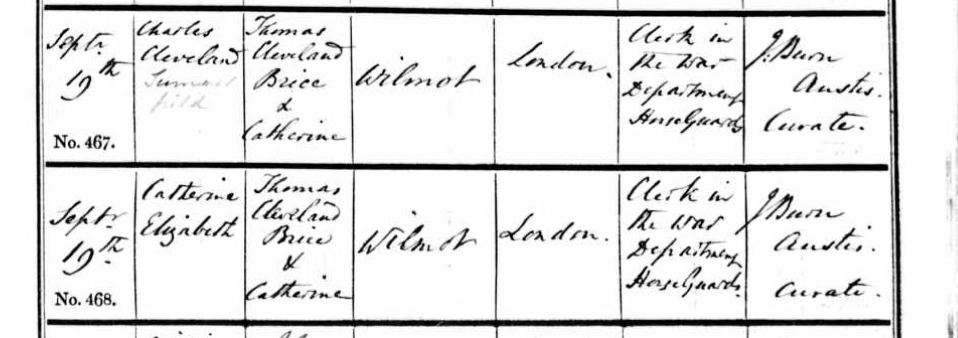 Septr
19th
No. 467.
Charles
Cleveland
Summer
field
Thomas
Cleveland
Brice
&
Catherine
Wilmot
London.
Clerk in
the War
Department
Horse Guards
J. Burn
Austis.
Curate.
Septr
19th.
No. 468.
Catherine
Elizabeth
Thomas
Cleveland
Brice
&
Catherine
Wilmot
London.
Clerk in
the War
Department
Horse Guards.
J Burn
Austis.
Curate.